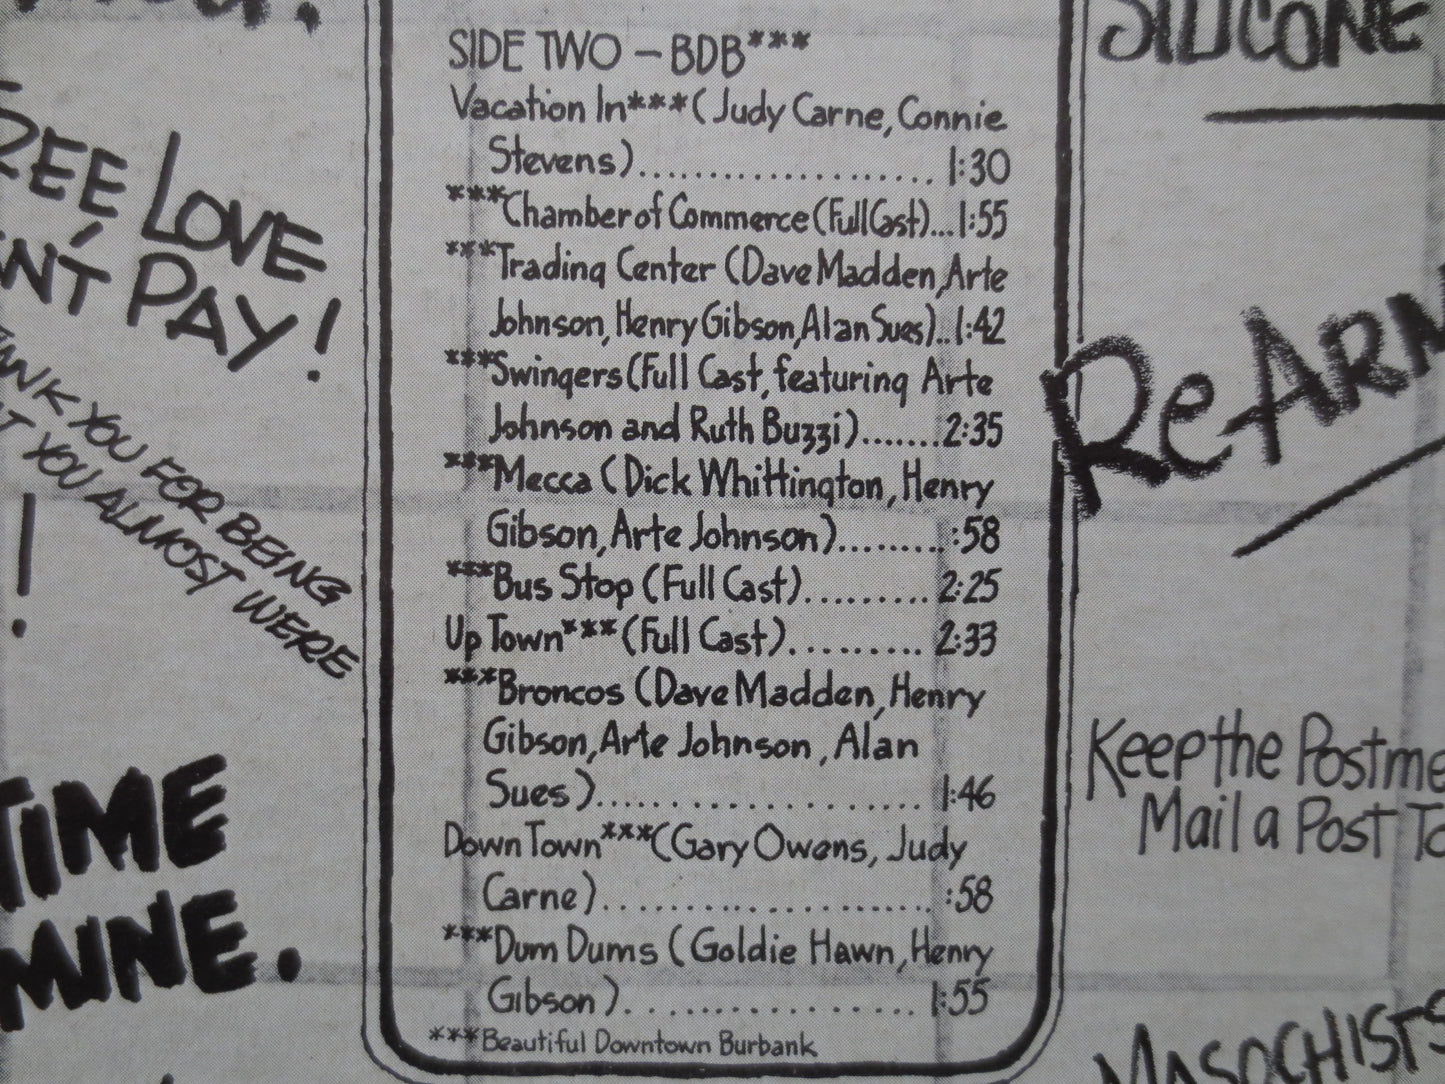 SIDE TWO – BDB***
Vacation In***(Judy Carne, Connie
Stevens)................... 1:30
***Chamber of Commerce (Full Cast)...1:55
***Trading Center (Dave Madden, Arte
Johnson, Henry Gibson, Alan Sues)..1:42
***Swingers (Full Cast, featuring Arte
Johnson and Ruth Buzzi).......2:35
***Mecca (Dick Whittington, Henry
Gibson, Arte Johnson).........:58
***Bus Stop (Full Cast)......... 2:25
Up Town*** (Full Cast)......... 2:33
***Broncos (Dave Madden, Henry
Gibson, Arte Johnson, Alan
Sues)...................... 1:46
Down Town***(Gary Owens, Judy
Carne)...................... :58
***Dum Dums (Goldie Hawn, Henry
Gibson).................... 1:55
***Beautiful Downtown Burbank
LOVE
PAY!
YOU FOR BEING
YOU ALMOST WERE
!
TIME
MINE.
SILICONE
ReARM
Keep the Postme
Mail a Post To
MASOCHISTS